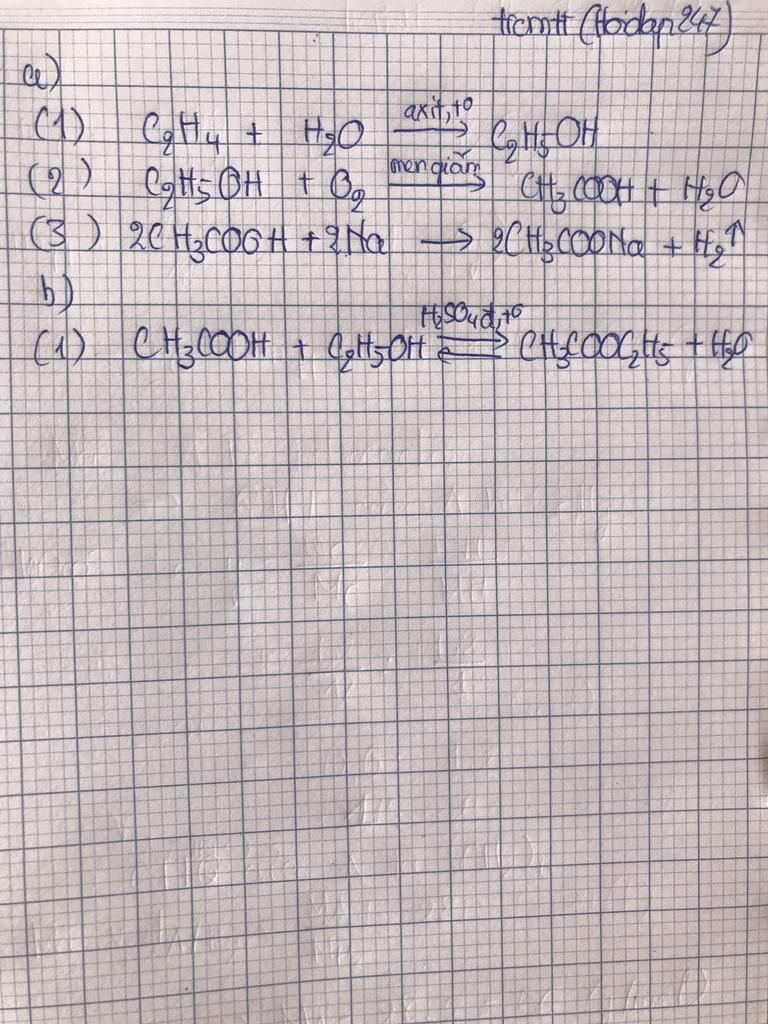 (Hoidap247)
a)
(1) C₂H₄ + H₂O axit,t⁰ → C₂H₅OH
(2) C₂H₅OH + O₂ men giấm → CH₃COOH + H₂O
(3) 2CH₃COOH + 2Na → 2CH₃COONa + H₂↑
b)
(1) CH₃COOH + C₂H₅OH H₂SO₄đ,t⁰ ⇌ CH₃COOC₂H₅ + H₂O